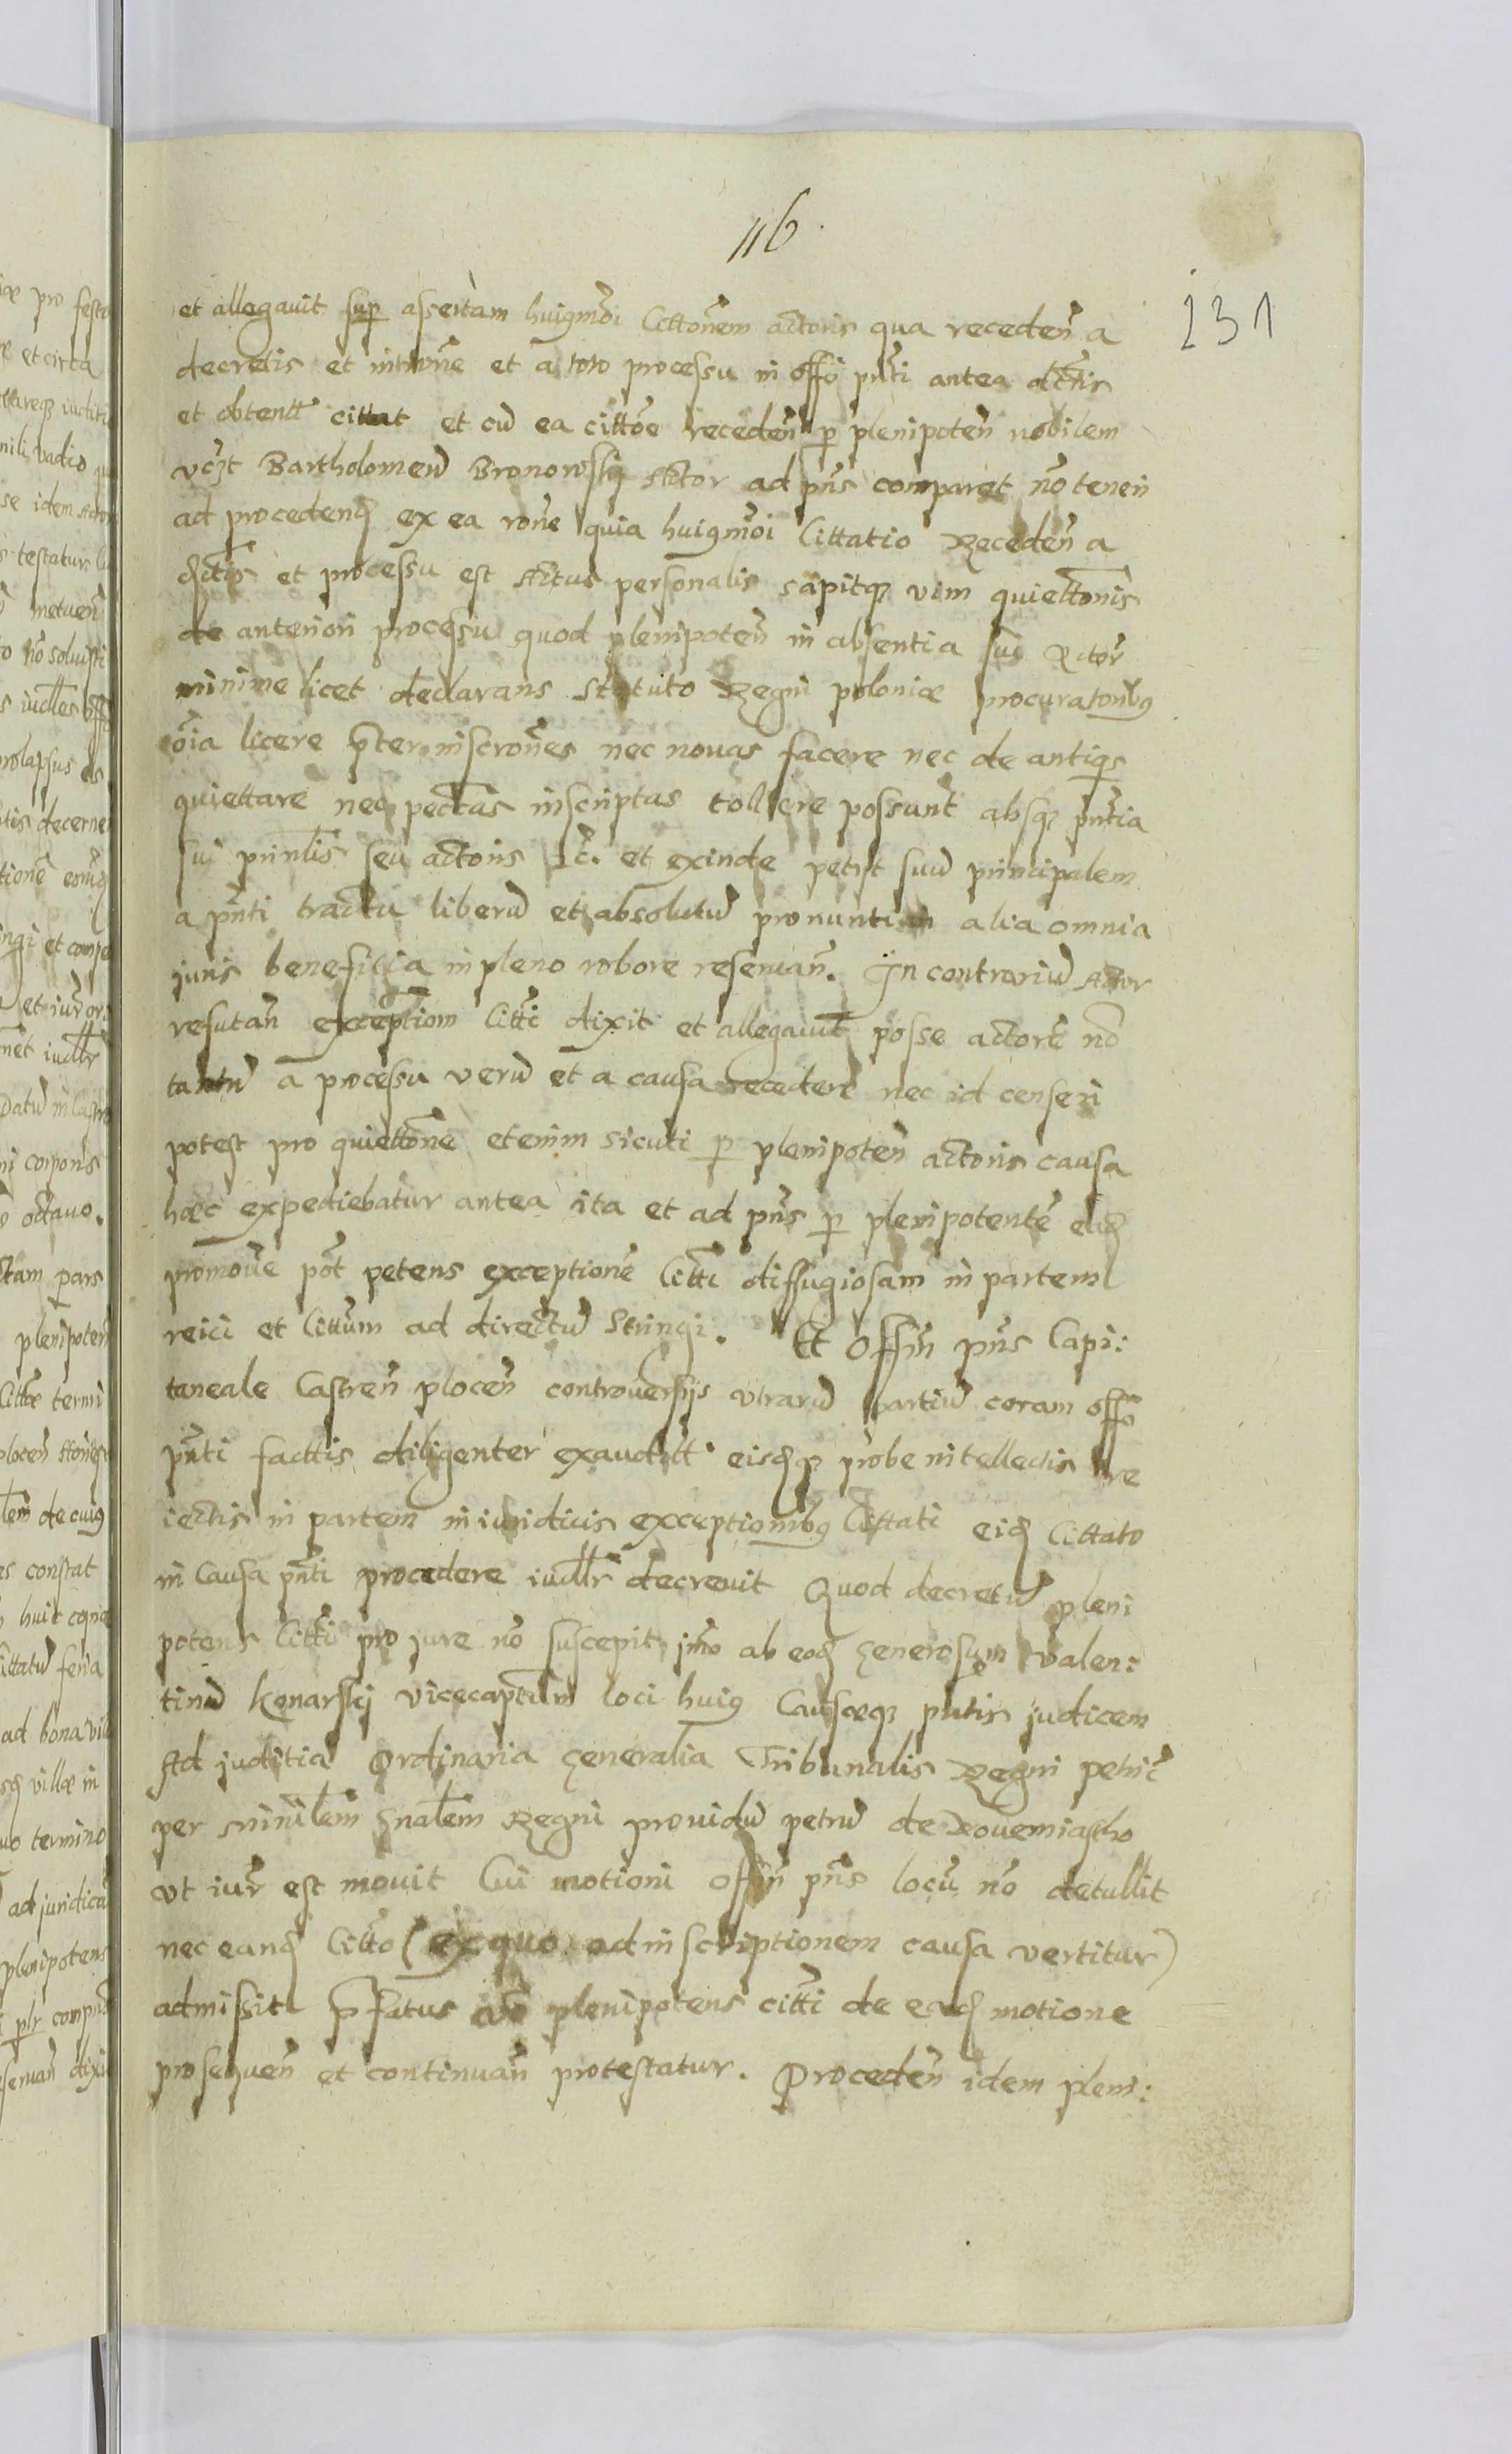 116
231
et allegauit sup assertam huigmõi Cittoñem actoris qua recedeñ a
decretis et intromne et a toto processu in offõ pñti antea dctis
et obtentt cittat et cũ ea cittõe recedeñ p plenipoteñ nobilem
Bartholomeũ Bronowskij Actor ad pñs comparet nõ teneri
ad procedend ex ea rone quia huigmõi Cittatio Recedeñ a
dctis et processu est Actus personalis sapitq vim quiettonis
de anteriori processu quod plenipoteñ in absentia sui Actor
minime licet declarans Statuto Regni poloniæ procuratoribg
oĩa licere pter inscroñes nec nouas facere nec de antiqs
quiettare neq pecctas inscriptas tollere possunt absq pñtia
sui prinlis seu actoris &c. et exinde petist suũ principalem
a pñti tractu liberũ et absolutũ pronuntiari alia omnia
juris beneficia in pleno robore reseruañ. In contrariũ Actor
refutañ exceptiom Citti dixit et allegauit posse actorẽ nõ
tantũ a processu verũ et a causa recedere nec id censeri
potest pro quiettone etenim sicuti p plenipoteñ actoris causa
hæc expediebatur antea ita et ad pñs p plenipotentẽ ead
promoue põt petens exceptionẽ Citti diffugiosam in partem
reici et Cittum ad directũ Stringi. Et Offm pñs Capi:
taneale Castreñ ploceñ controuersijs vtrarũ partiũ coram offõ
pñti facttis diligenter exauditt eisdq probe intellectis re
iectis in partem iniuridicis exceptionibg Cittati eid Cittato
in Causa pñti procedere iudllr decreuit Quod decretũ pleni
potens Citti pro jure nõ suscepit imo ab eod generosum Valen:
tinũ Konarskij vicecaptum loci huig Causæq pñtis judicem
Ad juditia Ordinaria generalia Tribunalis Regni petric
per minilem gnalem Regni prouidũ petrũ de Nouemiastho
vt iur est mouit Cui motioni Offm pñs locũ nõ detullit
nec eand Citto (ex quo ad inscriptionem causa vertitur)
admissit pfatus plenipotens citti de ead motione
prosequeñ et continuañ protestatur. Procedeñ idem pleni: